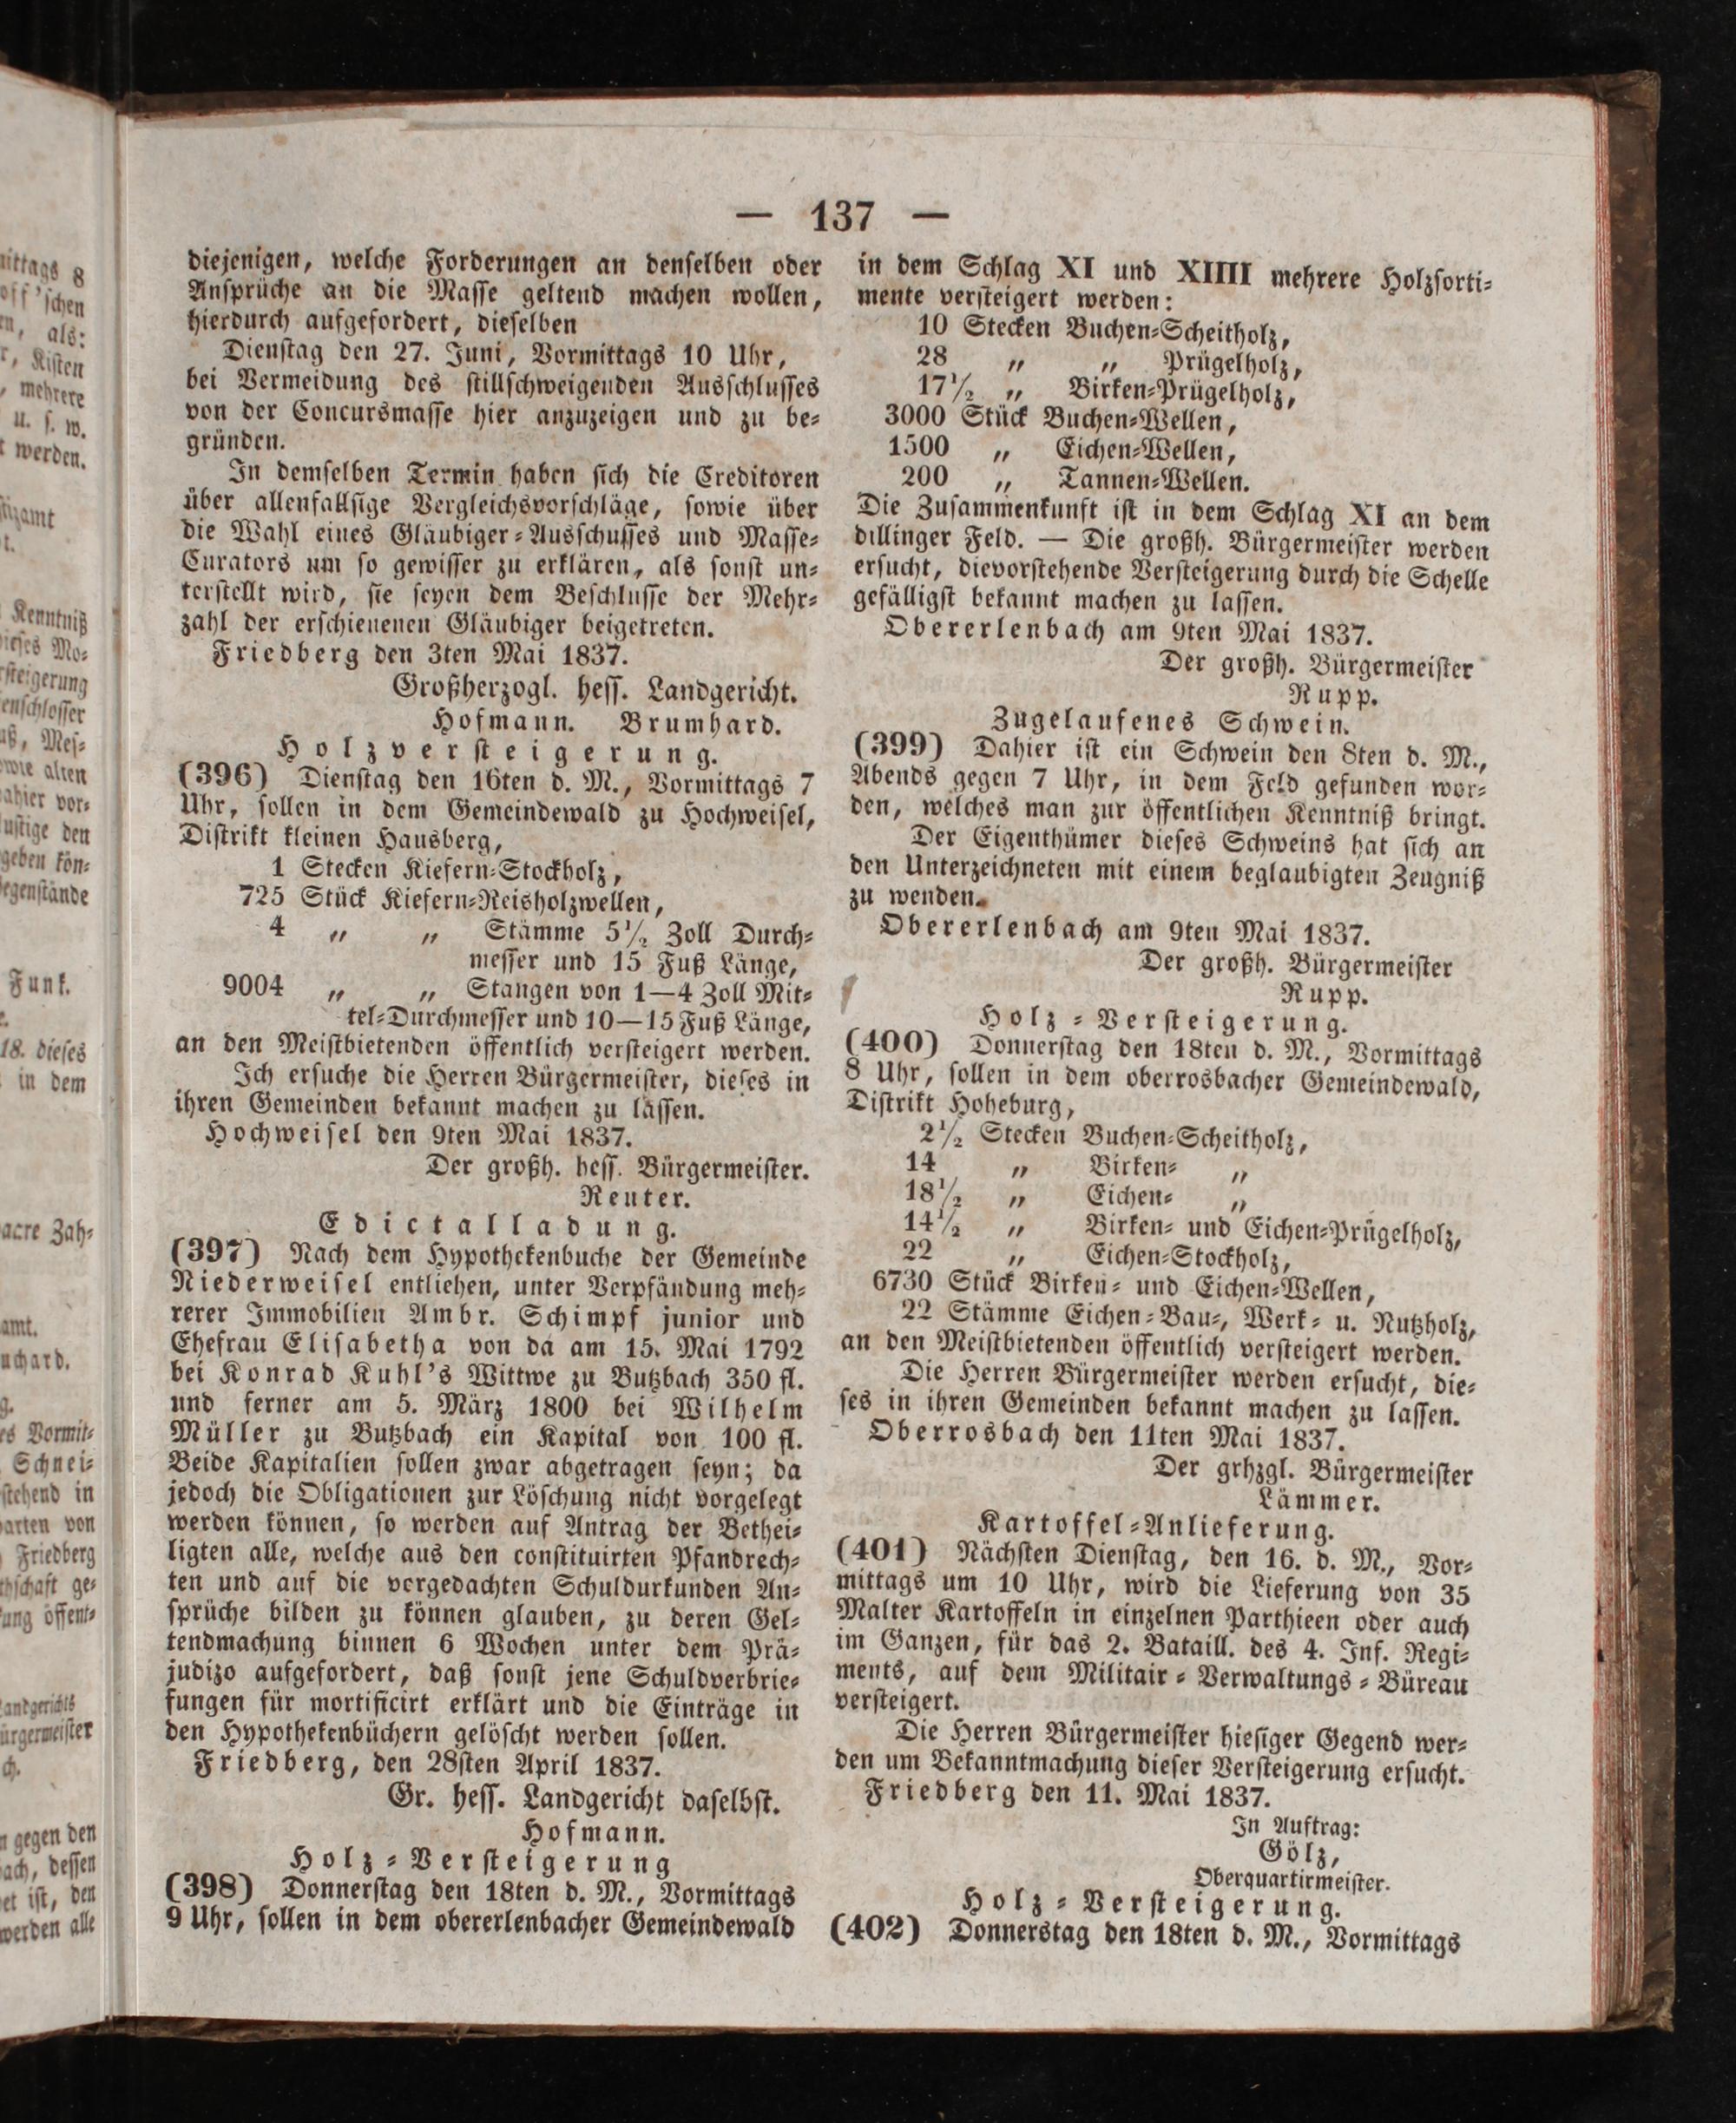 — 137 —
diejenigen, welche Forderungen an denſelben oder
Anſprüche an die Maſſe geltend machen wollen,
hierdurch aufgefordert, dieſelben
Dienſtag den 27. Juni, Vormittags 10 Uhr,
bei Vermeidung des ſtillſchweigenden Ausſchluſſes
von der Concursmaſſe hier anzuzeigen und zu be⸗
gründen.
In demſelben Termin haben ſich die Creditoren
über allenfallſige Vergleichsvorſchläge, ſowie über
die Wahl eines Gläubiger⸗Ausſchuſſes und Maſſe⸗
Curators um ſo gewiſſer zu erklären, als ſonſt un⸗
terſtellt wird, ſie ſeyen dem Beſchluſſe der Mehr⸗
zahl der erſchienenen Gläubiger beigetreten.
Friedberg den 3ten Mai 1837.
Großherzogl. heſſ. Landgericht.
Hofmann. Brumhard.
Holzverſteigerung.
(396) Dienſtag den 16ten d. M., Vormittags 7
Uhr, ſollen in dem Gemeindewald zu Hochweiſel,
Diſtrikt kleinen Hausberg,
1 Stecken Kiefern⸗Stockholz,
725 Stück Kiefern⸗Reisholzwellen,
4 „ „ Stämme 5½ Zoll Durch⸗
meſſer und 15 Fuß Länge,
9004 „ „ Stangen von 1—4 Zoll Mit⸗
tel⸗Durchmeſſer und 10—15 Fuß Länge,
an den Meiſtbietenden öffentlich verſteigert werden.
Ich erſuche die Herren Bürgermeiſter, dieſes in
ihren Gemeinden bekannt machen zu laſſen.
Hochweiſel den 9ten Mai 1837.
Der großh. heſſ. Bürgermeiſter.
Reuter.
Edictalladung.
(397) Nach dem Hypothekenbuche der Gemeinde
Niederweiſel entliehen, unter Verpfändung meh⸗
rerer Immobilien Ambr. Schimpf junior und
Ehefrau Eliſabetha von da am 15. Mai 1792
bei Konrad Kuhl's Wittwe zu Butzbach 350 fl.
und ferner am 5. März 1800 bei Wilhelm
Müller zu Butzbach ein Kapital von 100 fl.
Beide Kapitalien ſollen zwar abgetragen ſeyn; da
jedoch die Obligationen zur Löſchung nicht vorgelegt
werden können, ſo werden auf Antrag der Bethei⸗
ligten alle, welche aus den conſtituirten Pfandrech⸗
ten und auf die vorgedachten Schuldurkunden An⸗
ſprüche bilden zu können glauben, zu deren Gel⸗
tendmachung binnen 6 Wochen unter dem Prä⸗
judizo aufgefordert, daß ſonſt jene Schuldverbrie⸗
fungen für mortificirt erklärt und die Einträge in
den Hypothekenbüchern gelöſcht werden ſollen.
Friedberg, den 28ſten April 1837.
Gr. heſſ. Landgericht daſelbſt.
Hofmann.
Holz⸗Verſteigerung
(398) Donnerſtag den 18ten d. M., Vormittags
9 Uhr, ſollen in dem obererlenbacher Gemeindewald
in dem Schlag XI und XIIII mehrere Holzſorti⸗
mente verſteigert werden:
10 Stecken Buchen⸗Scheitholz,
28 „ „ Prügelholz,
17½ „ Birken⸗Prügelholz,
3000 Stück Buchen⸗Wellen,
1500 „ Eichen⸗Wellen,
200 „ Tannen⸗Wellen.
Die Zuſammenkunft iſt in dem Schlag XI an dem
dillinger Feld. — Die großh. Bürgermeiſter werden
erſucht, dievorſtehende Verſteigerung durch die Schelle
gefälligſt bekannt machen zu laſſen.
Obererlenbach am 9ten Mai 1837.
Der großh. Bürgermeiſter
Rupp.
Zugelaufenes Schwein.
(399) Dahier iſt ein Schwein den 8ten d. M.,
Abends gegen 7 Uhr, in dem Feld gefunden wor⸗
den, welches man zur öffentlichen Kenntniß bringt.
Der Eigenthümer dieſes Schweins hat ſich an
den Unterzeichneten mit einem beglaubigten Zeugniß
zu wenden.
Obererlenbach am 9ten Mai 1837.
Der großh. Bürgermeiſter
Rupp.
Holz⸗Verſteigerung.
(400) Donnerſtag den 18ten d. M., Vormittags
8 Uhr, ſollen in dem oberrosbacher Gemeindewald,
Diſtrikt Hoheburg,
2½ Stecken Buchen⸗Scheitholz,
14 „ Birken⸗ „
18½ „ Eichen⸗ „
14½ „ Birken⸗ und Eichen⸗Prügelholz,
22 „ Eichen⸗Stockholz,
6730 Stück Birken⸗ und Eichen⸗Wellen,
22 Stämme Eichen⸗Bau⸗, Werk⸗ u. Nutzholz,
an den Meiſtbietenden öffentlich verſteigert werden.
Die Herren Bürgermeiſter werden erſucht, die⸗
ſes in ihren Gemeinden bekannt machen zu laſſen.
Oberrosbach den 11ten Mai 1837.
Der grhzgl. Bürgermeiſter
Lämmer.
Kartoffel⸗Anlieferung.
(401) Nächſten Dienſtag, den 16. d. M., Vor⸗
mittags um 10 Uhr, wird die Lieferung von 35
Malter Kartoffeln in einzelnen Parthieen oder auch
im Ganzen, für das 2. Bataill. des 4. Inf. Regi⸗
ments, auf dem Militair⸗Verwaltungs⸗Büreau
verſteigert.
Die Herren Bürgermeiſter hieſiger Gegend wer⸗
den um Bekanntmachung dieſer Verſteigerung erſucht.
Friedberg den 11. Mai 1837.
In Auftrag:
Gölz,
Oberquartirmeiſter.
Holz⸗Verſteigerung.
(402) Donnerstag den 18ten d. M., Vormittags